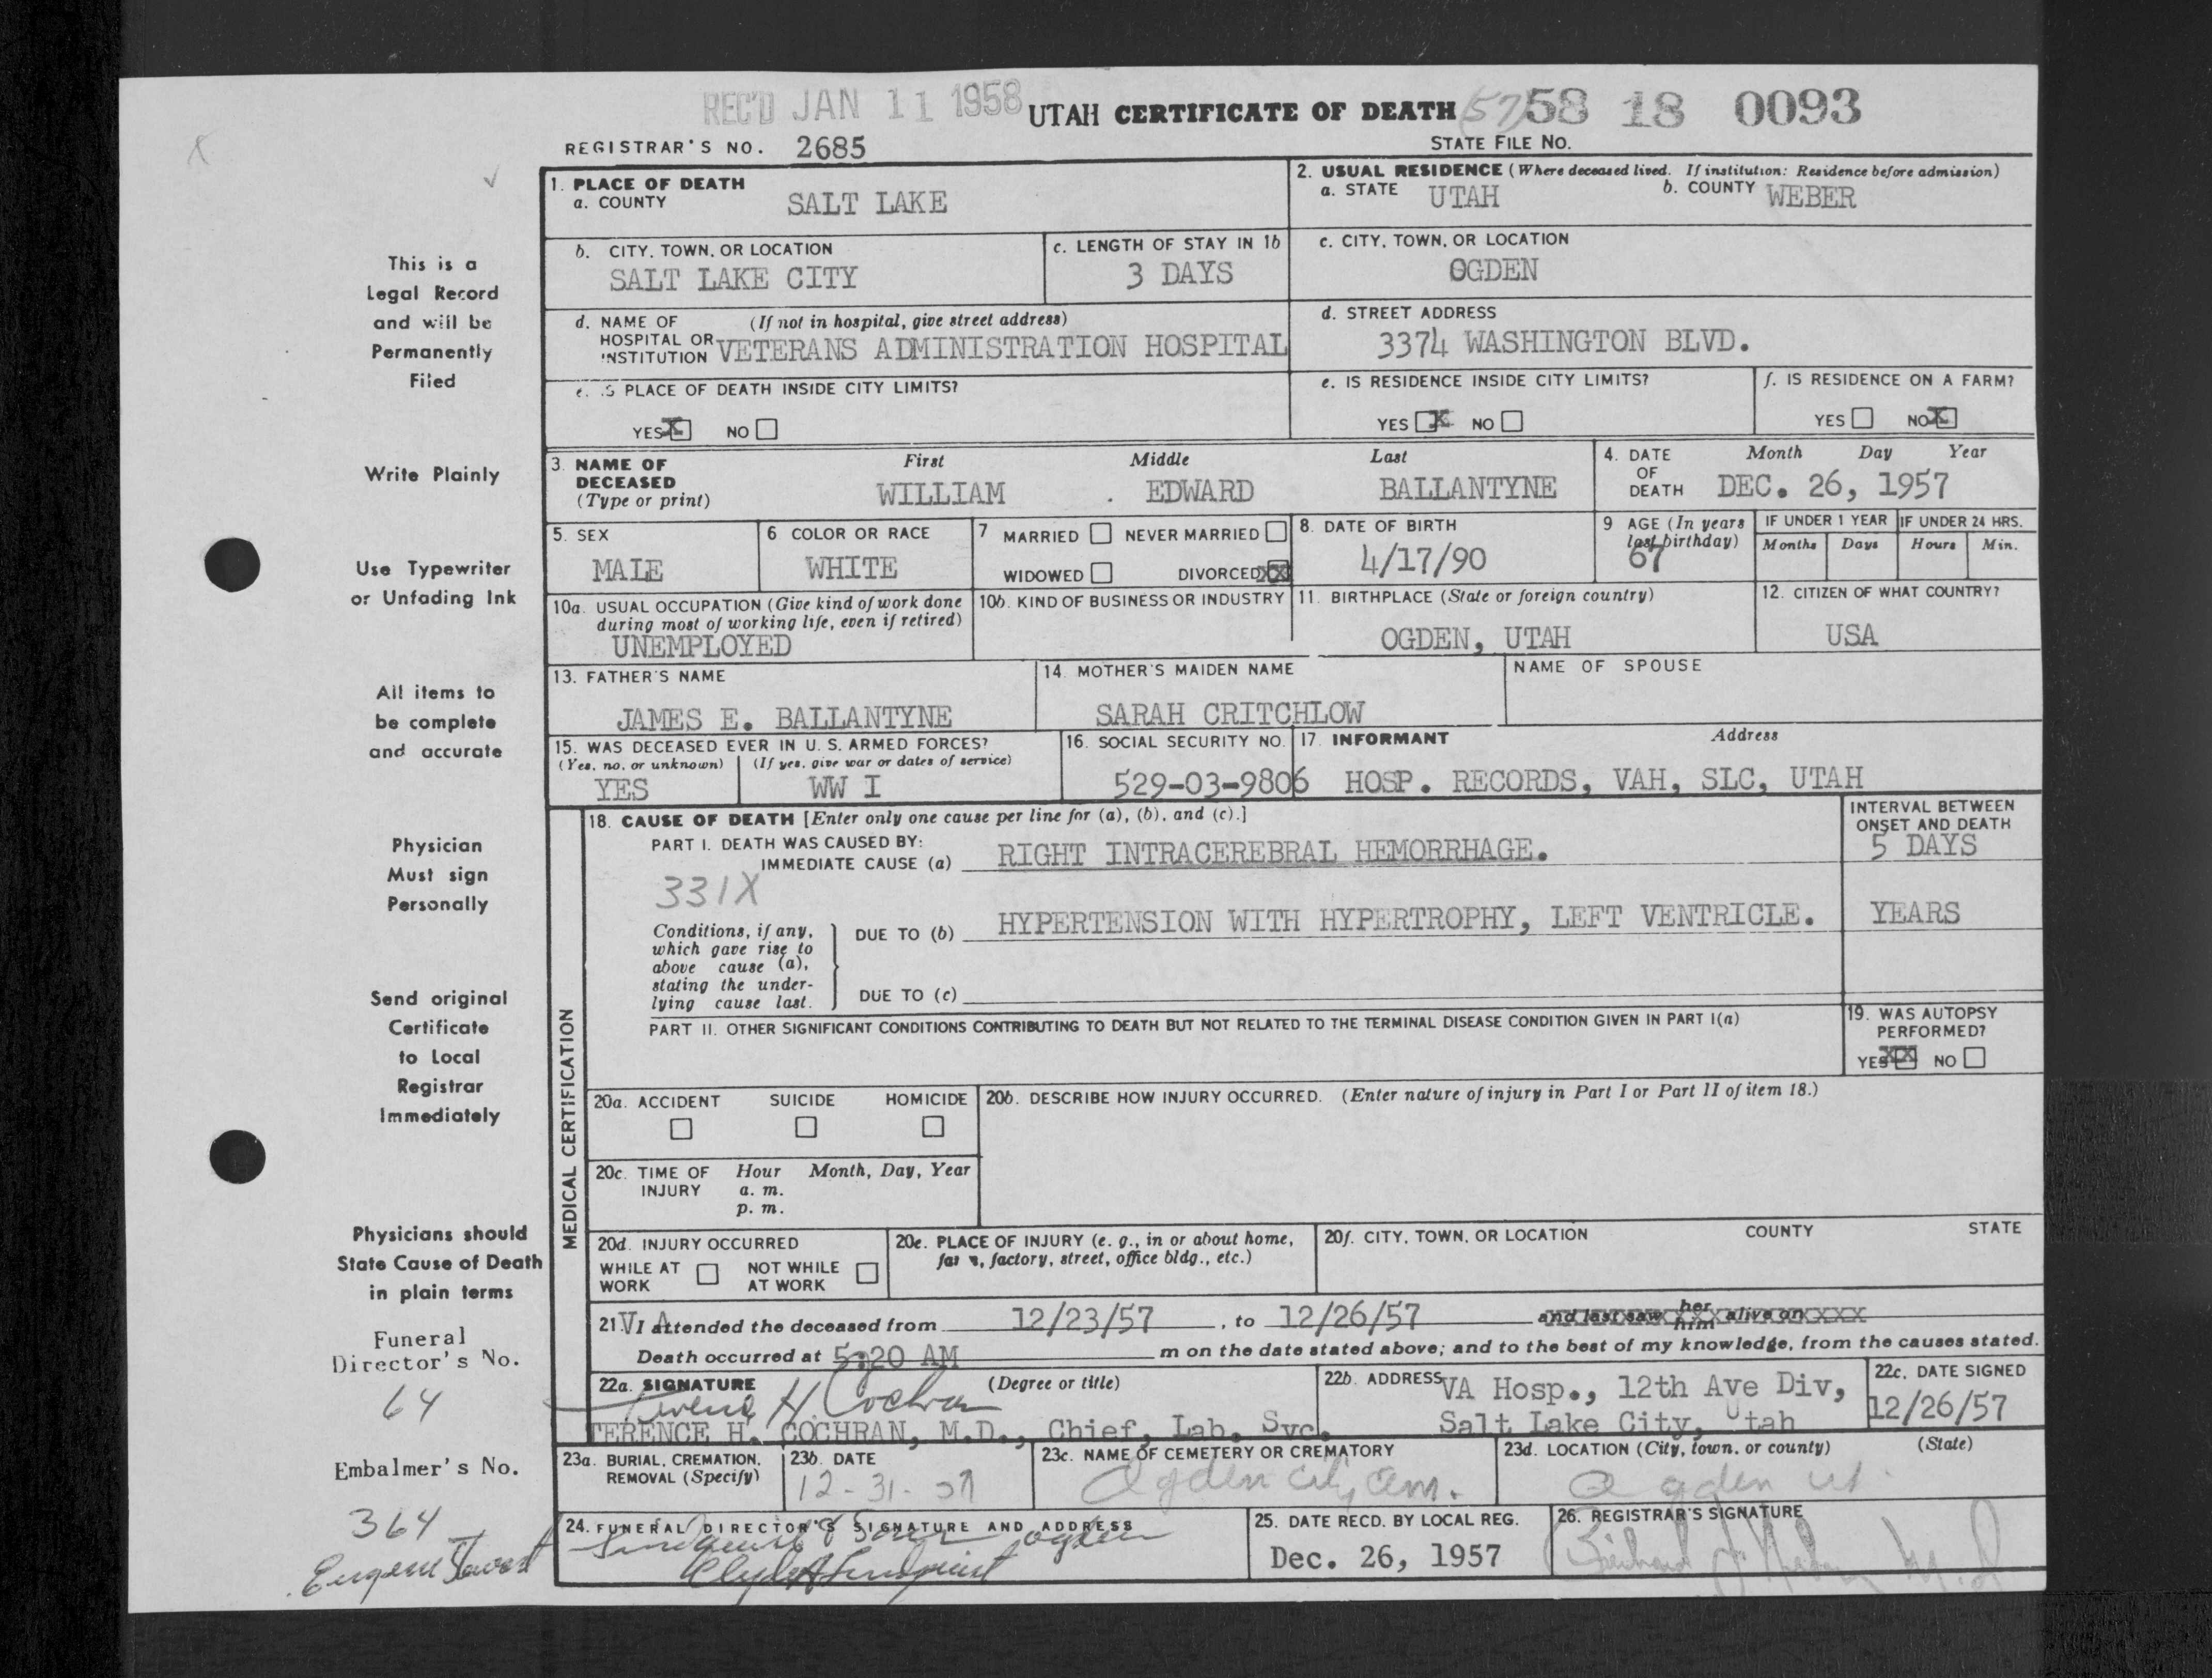 REC'D JAN 11 1958 UTAH CERTIFICATE OF DEATH (57) 58 18 0093
REGISTRAR'S NO. 2685 STATE FILE NO.
1. PLACE OF DEATH
a. COUNTY SALT LAKE
2. USUAL RESIDENCE (Where deceased lived. If institution: Residence before admission)
a. STATE UTAH b. COUNTY WEBER
b. CITY, TOWN, OR LOCATION
SALT LAKE CITY
c. LENGTH OF STAY IN 1b
3 DAYS
c. CITY, TOWN, OR LOCATION
OGDEN
d. NAME OF (If not in hospital, give street address)
HOSPITAL OR
INSTITUTION VETERANS ADMINISTRATION HOSPITAL
d. STREET ADDRESS
3374 WASHINGTON BLVD.
e. IS PLACE OF DEATH INSIDE CITY LIMITS?
YES X NO
e. IS RESIDENCE INSIDE CITY LIMITS?
YES X NO
f. IS RESIDENCE ON A FARM?
YES NO X
3. NAME OF DECEASED (Type or print)
First Middle Last
WILLIAM . EDWARD BALLANTYNE
4. DATE OF DEATH
Month Day Year
DEC. 26, 1957
5. SEX
MALE
6 COLOR OR RACE
WHITE
7 MARRIED NEVER MARRIED
WIDOWED DIVORCED XX
8. DATE OF BIRTH
4/17/90
9 AGE (In years last birthday)
67
IF UNDER 1 YEAR
Months Days
IF UNDER 24 HRS.
Hours Min.
10a. USUAL OCCUPATION (Give kind of work done
during most of working life, even if retired)
UNEMPLOYED
10b. KIND OF BUSINESS OR INDUSTRY
11. BIRTHPLACE (State or foreign country)
OGDEN, UTAH
12. CITIZEN OF WHAT COUNTRY?
USA
13. FATHER'S NAME
JAMES E. BALLANTYNE
14. MOTHER'S MAIDEN NAME
SARAH CRITCHLOW
NAME OF SPOUSE
15. WAS DECEASED EVER IN U. S. ARMED FORCES?
(Yes, no, or unknown) (If yes, give war or dates of service)
YES WW I
16. SOCIAL SECURITY NO.
529-03-9806
17. INFORMANT Address
HOSP. RECORDS, VAH, SLC, UTAH
MEDICAL CERTIFICATION
18. CAUSE OF DEATH [Enter only one cause per line for (a), (b), and (c).]
INTERVAL BETWEEN
ONSET AND DEATH
PART I. DEATH WAS CAUSED BY:
IMMEDIATE CAUSE (a) RIGHT INTRACEREBRAL HEMORRHAGE. 5 DAYS
331X
Conditions, if any,
which gave rise to
above cause (a),
stating the under-
lying cause last.
DUE TO (b) HYPERTENSION WITH HYPERTROPHY, LEFT VENTRICLE. YEARS
DUE TO (c)
PART II. OTHER SIGNIFICANT CONDITIONS CONTRIBUTING TO DEATH BUT NOT RELATED TO THE TERMINAL DISEASE CONDITION GIVEN IN PART I(a)
19. WAS AUTOPSY
PERFORMED?
YES XX NO
20a. ACCIDENT SUICIDE HOMICIDE
20b. DESCRIBE HOW INJURY OCCURRED. (Enter nature of injury in Part I or Part II of item 18.)
20c. TIME OF INJURY
Hour Month, Day, Year
a. m.
p. m.
20d. INJURY OCCURRED
WHILE AT WORK NOT WHILE AT WORK
20e. PLACE OF INJURY (e. g., in or about home,
farm, factory, street, office bldg., etc.)
20f. CITY, TOWN, OR LOCATION COUNTY STATE
21. VA I attended the deceased from 12/23/57, to 12/26/57 and last saw her him alive on XXXX
Death occurred at 5:20 AM m on the date stated above; and to the best of my knowledge, from the causes stated.
22a. SIGNATURE (Degree or title)
Terence H Cochran
TERENCE H. COCHRAN, M.D., Chief, Lab. Svc.
22b. ADDRESS VA Hosp., 12th Ave Div,
Salt Lake City, Utah
22c. DATE SIGNED
12/26/57
23a. BURIAL, CREMATION,
REMOVAL (Specify)
23b. DATE
12-31-57
23c. NAME OF CEMETERY OR CREMATORY
Ogden City Cem.
23d. LOCATION (City, town, or county) (State)
Ogden Ut.
24. FUNERAL DIRECTOR'S SIGNATURE AND ADDRESS
Lindquist & Sons Ogden
Clyde A Lindquist
25. DATE RECD. BY LOCAL REG.
Dec. 26, 1957
26. REGISTRAR'S SIGNATURE
M.D
This is a
Legal Record
and will be
Permanently
Filed
Write Plainly
Use Typewriter
or Unfading Ink
All items to
be complete
and accurate
Physician
Must sign
Personally
Send original
Certificate
to Local
Registrar
Immediately
Physicians should
State Cause of Death
in plain terms
Funeral
Director's No.
64
Embalmer's No.
364
Eugene